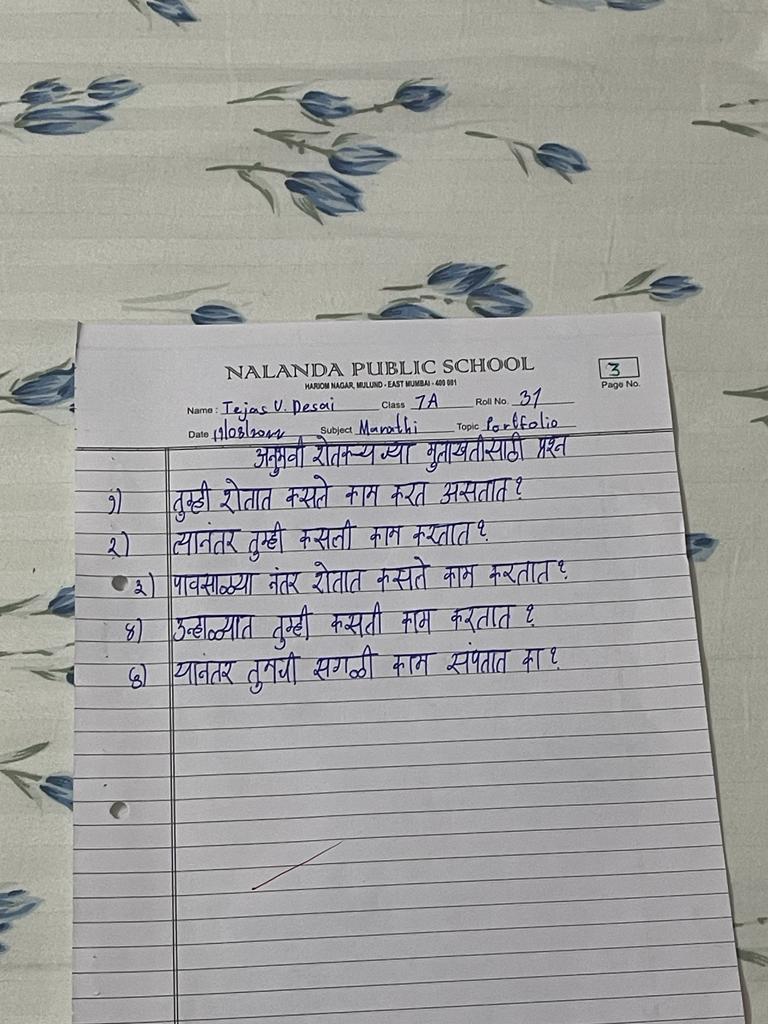 NALANDA PUBLIC SCHOOL
HARIOM NAGAR, MULUND - EAST MUMBAI - 400 081
3
Page No.
Name : Tejas V. Desai Class 7A Roll No. 37
Date Subject Marathi Topic Portfolio
अनुभवी शेतकऱ्याच्या मुलाखतीसाठी प्रश्न
१) तुम्ही शेतात कसले काम करत असतात?
२) त्यानंतर तुम्ही कसली काम करतात?
३) पावसाळ्या नंतर शेतात कसले काम करतात?
४) उन्हाळ्यात तुम्ही कसली काम करतात?
५) यानंतर तुमची सगळी काम संपतात का?